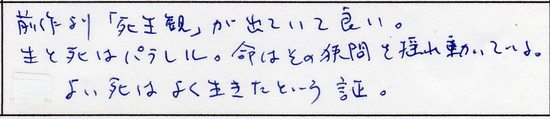 前作より「死生観」が出ていて良い。
生と死はパラレル。命はその狭間を揺れ動いている。
よい死はよく生きたという証。